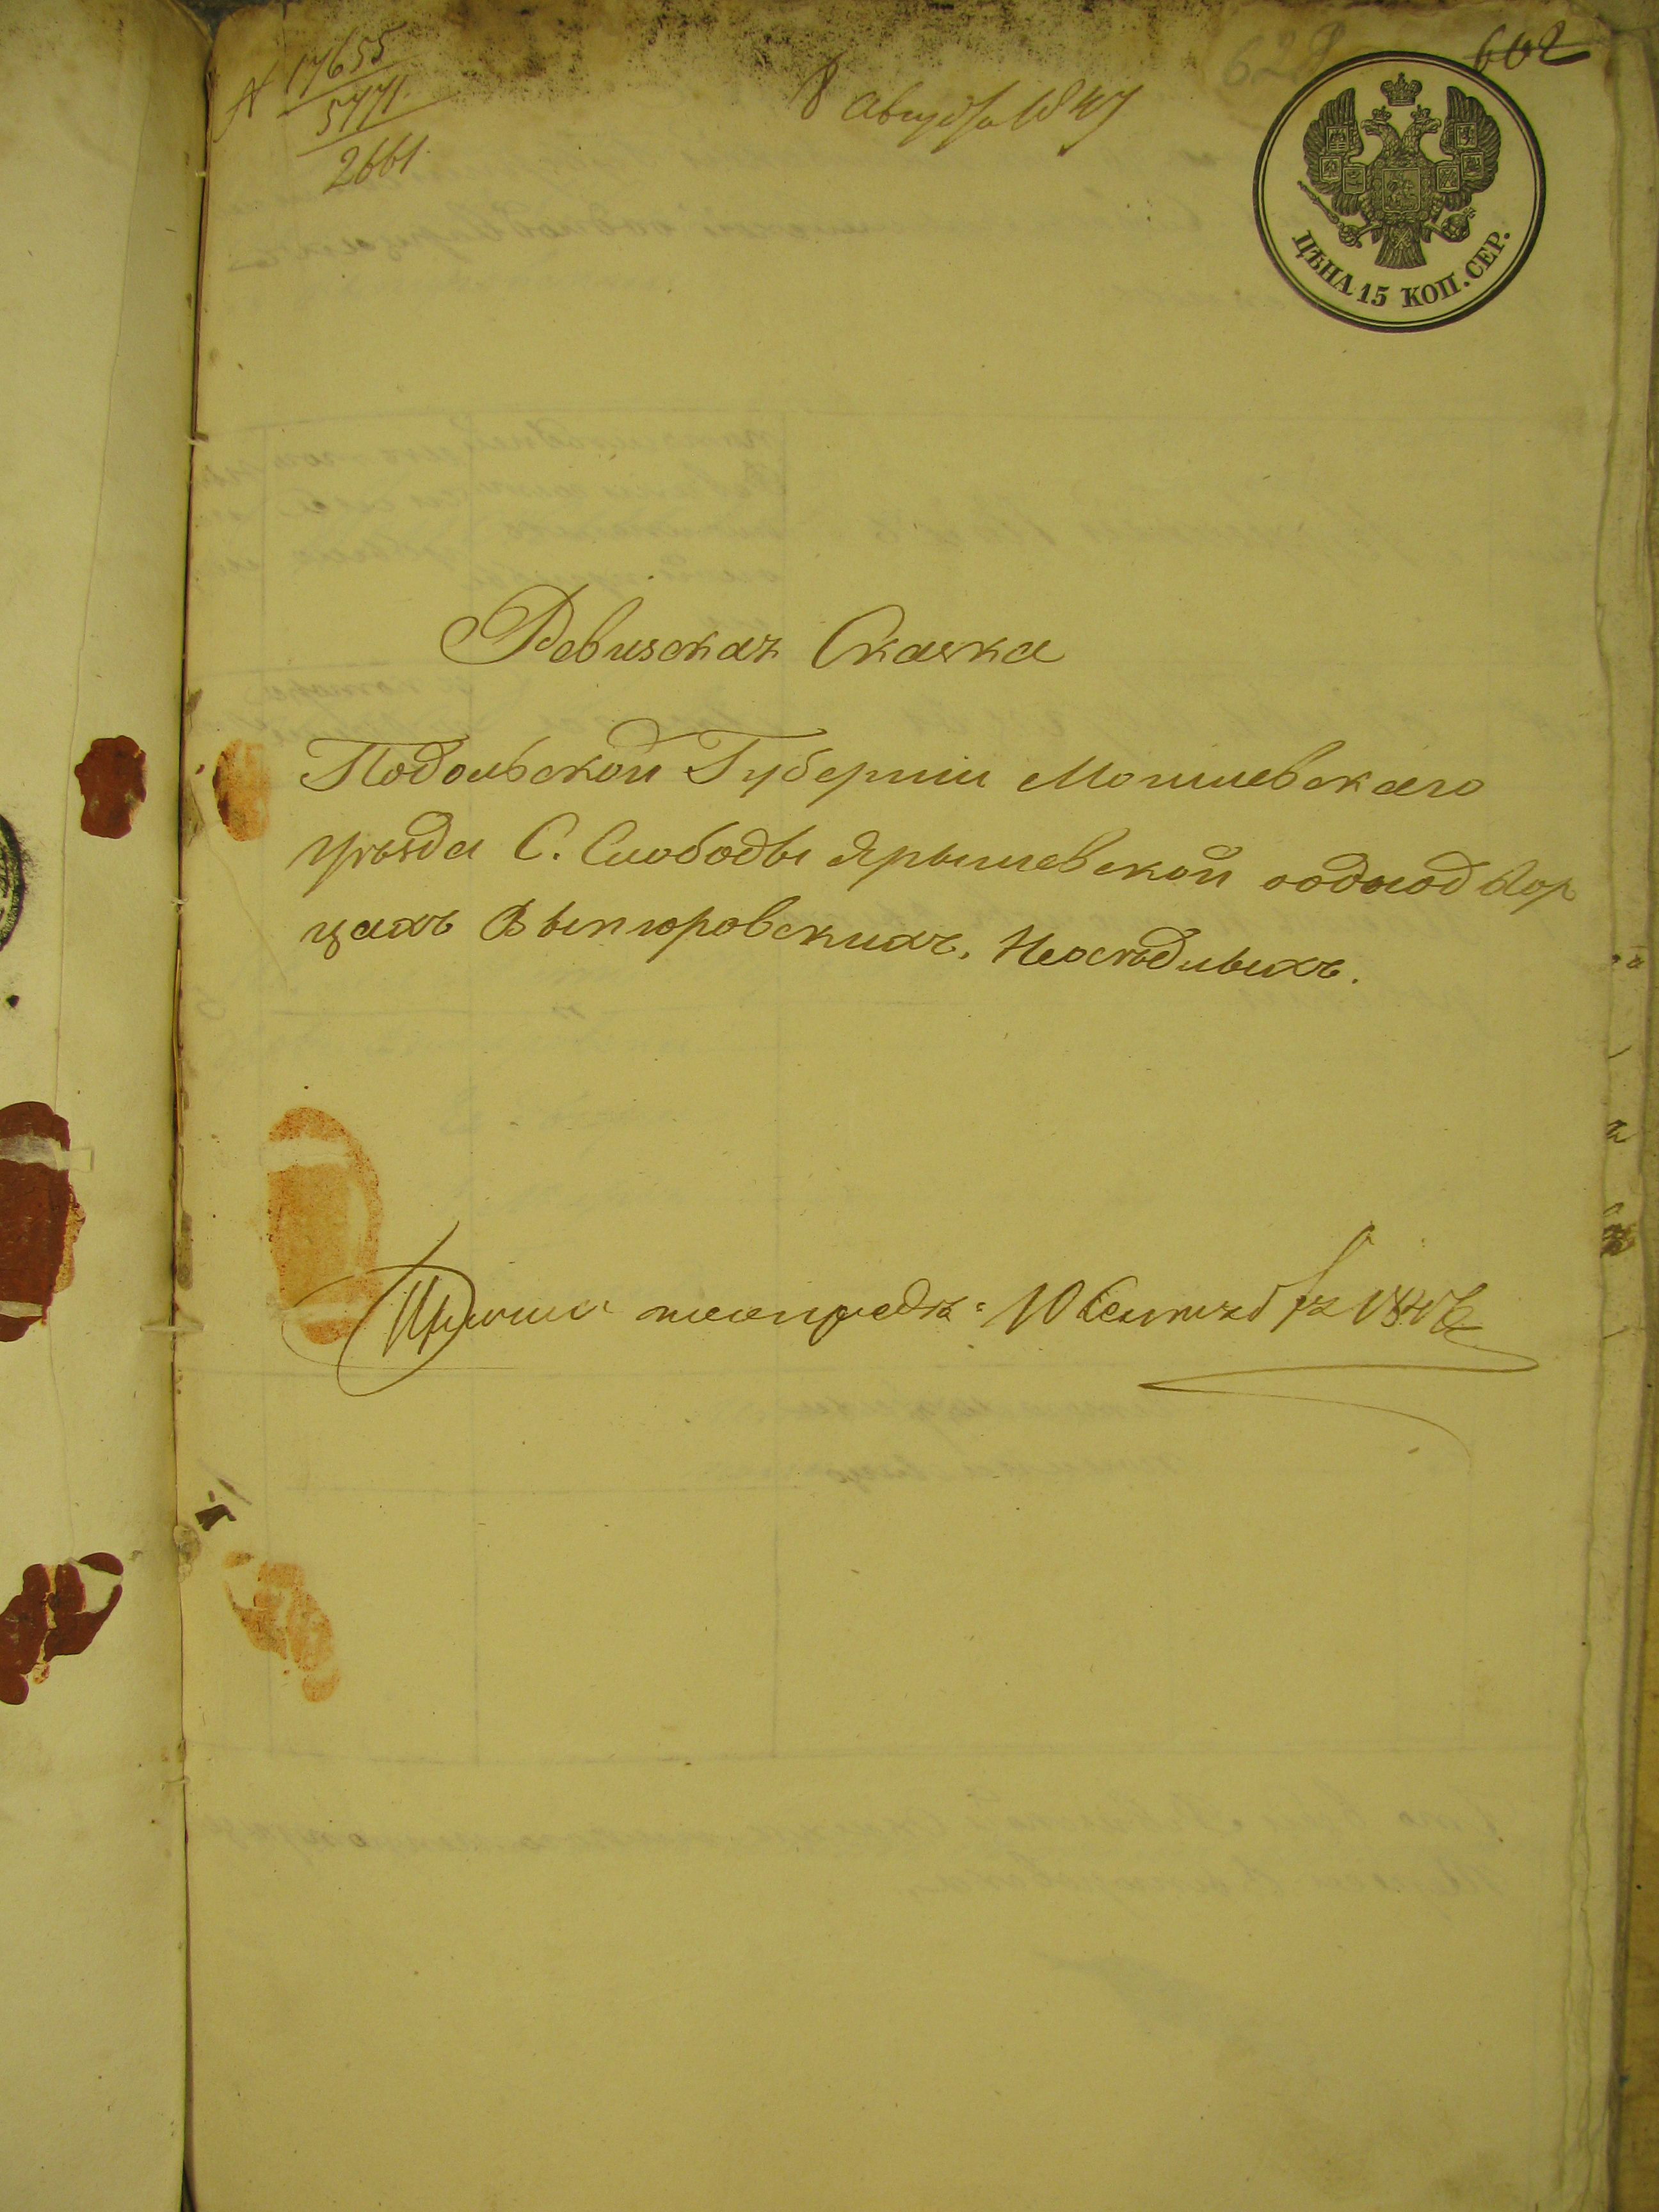 17655
5771
2661
8 Августа 1847
602
ЦѢНА 15 КОП. СЕР.
Ревизская Сказка
Подольской Губернии Могилевскаго
уѣзда С. Слободы Ярышевской о однодвор
цахъ Выпюровскихъ. Неосѣдлыхъ.
10 Сентября